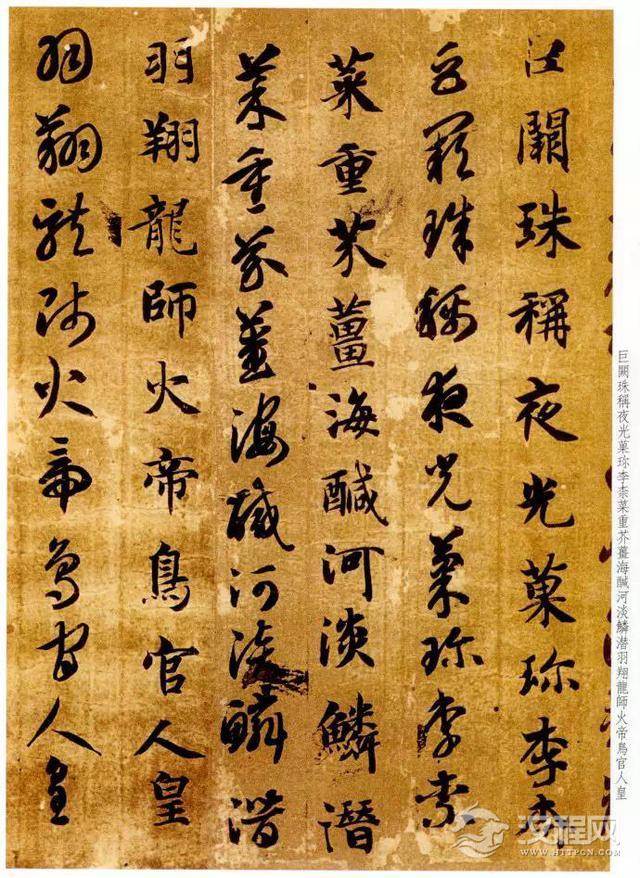 巨闕珠稱夜光菓珎李柰菜重芥薑海醎河淡鱗潜羽翔龍師火帝鳥官人皇
巨闕珠稱夜光菓珎李柰
巨闕珠稱夜光菓珎李柰
菜重芥薑海醎河淡鱗潛
菜重芥薑海醎河淡鱗潛
羽翔龍師火帝鳥官人皇
羽翔龍師火帝鳥官人皇
汉程网
HTTPCN.COM